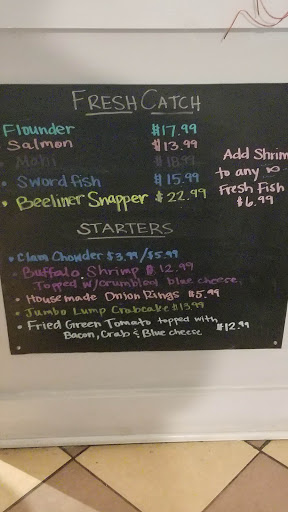 FRESH CATCH
Flounder $17.99
Salmon $13.99
• Mahi $18.99
• Swordfish $15.99
• Beeliner Snapper $22.99
Add Shrimp
to any
Fresh Fish
$6.99
STARTERS
• Clam Chowder $3.99/$5.99
• Buffalo Shrimp 12.99
Topped w/crumbled blue cheese
• Housemade Onion Rings $5.99
• Jumbo Lump Crabcake $13.99
• Fried Green Tomato topped with
Bacon, Crab & Blue cheese $12.99